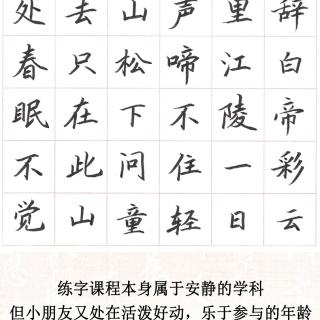 辞白帝彩云
里江陵一日
声啼不住轻
山松下问童
去只在此山
处春眠不觉
练字课程本身属于安静的学科
但小朋友又处在活泼好动，乐于参与的年龄